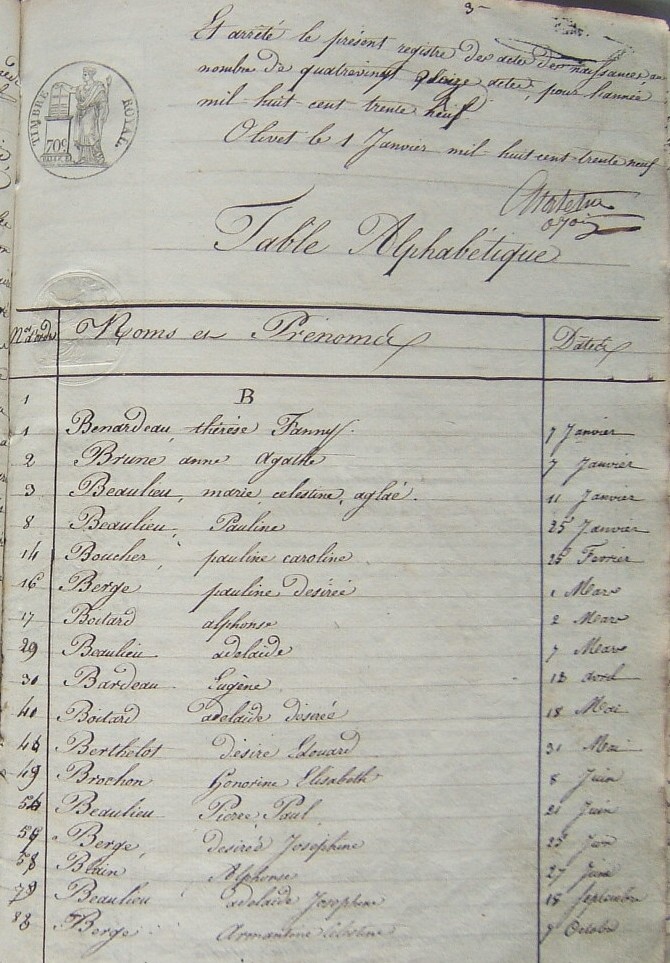 3
Et arrêté le présent registre des acte des naissances au
nombre de quatrevingt quize actes, pour l'année
mil huit cent trente neuf
Olivet le 1 Janvier mil huit cent trente neuf
TIMBRE ROYAL
70c
Table Alphabétique
Nos d'ordre Noms et Prénoms Dates
1 B
1 Benardeau thérèse Fanny. 7 Janvier
2 Brune anne Agathe 7 Janvier
3 Beaulieu, marie, celestine, aglaé. 11 Janvier
8 Beaulieu, Pauline 25 Janvier
14 Boucher, pauline caroline 25 Fevrier
16 Berge pauline desirée 1 Mars
17 Boitard alphonse 2 Mars
29 Beaulieu adelaide 7 Mars
30 Bardeau Eugène 13 avril
40 Boitard adelaide desirée 18 Mai
Berthelot desiré Edouard 31 Mai
49 Brochon honorine Elisabeth 8 Juin
Beaulieu Pierre Paul 21 Juin
Berge, desirée Josephine 25 Juin
Blain Alphonse 27 Juin
Beaulieu adelaide Josephine 15 Septembre
Berge Armantine Celestine Octobre